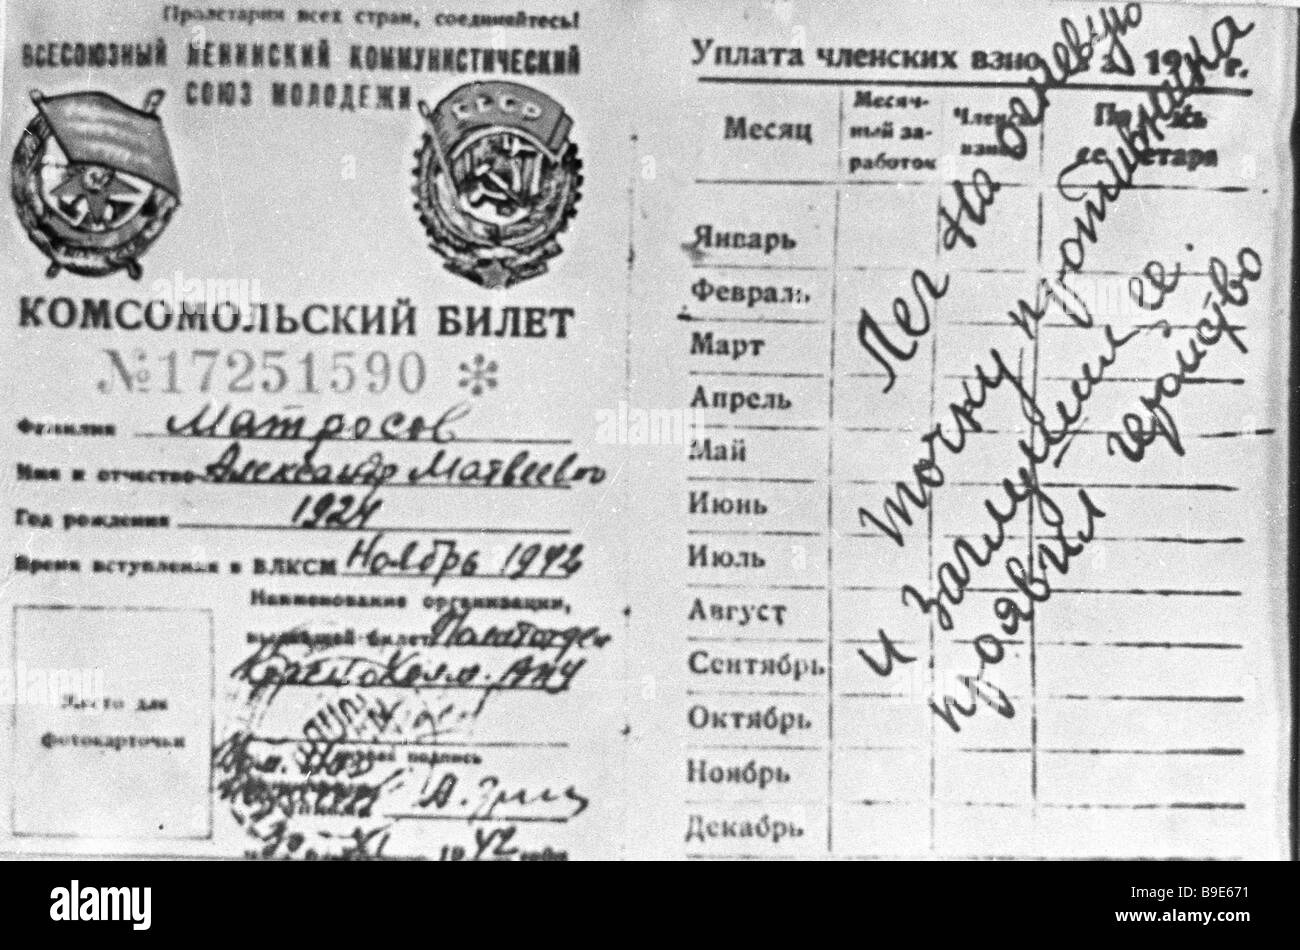 Пролетарии всех стран, соединяйтесь!
ВСЕСОЮЗНЫЙ ЛЕНИНСКИЙ КОММУНИСТИЧЕСКИЙ
СОЮЗ МОЛОДЕЖИ
СССР
КОМСОМОЛЬСКИЙ БИЛЕТ
№17251590 *
Фамилия Матросов
Имя и отчество Александр Матвеевич
Год рождения 1924
Время вступления в ВЛКСМ Ноябрь 1942
Наименование организации,
выдавшей билет
Место для
фотокарточки
подпись
30 XI 1942 года
Уплата членских взно 19 г.
Месяц
Месяч-
ный за-
работок
Январь
Февраль
Март
Апрель
Май
Июнь
Июль
Август
Сентябрь
Октябрь
Ноябрь
Декабрь
Лег на огневую
точку противника
и заглушил ее.
проявил геройство
alamy
Image ID: B9E671
www.alamy.com